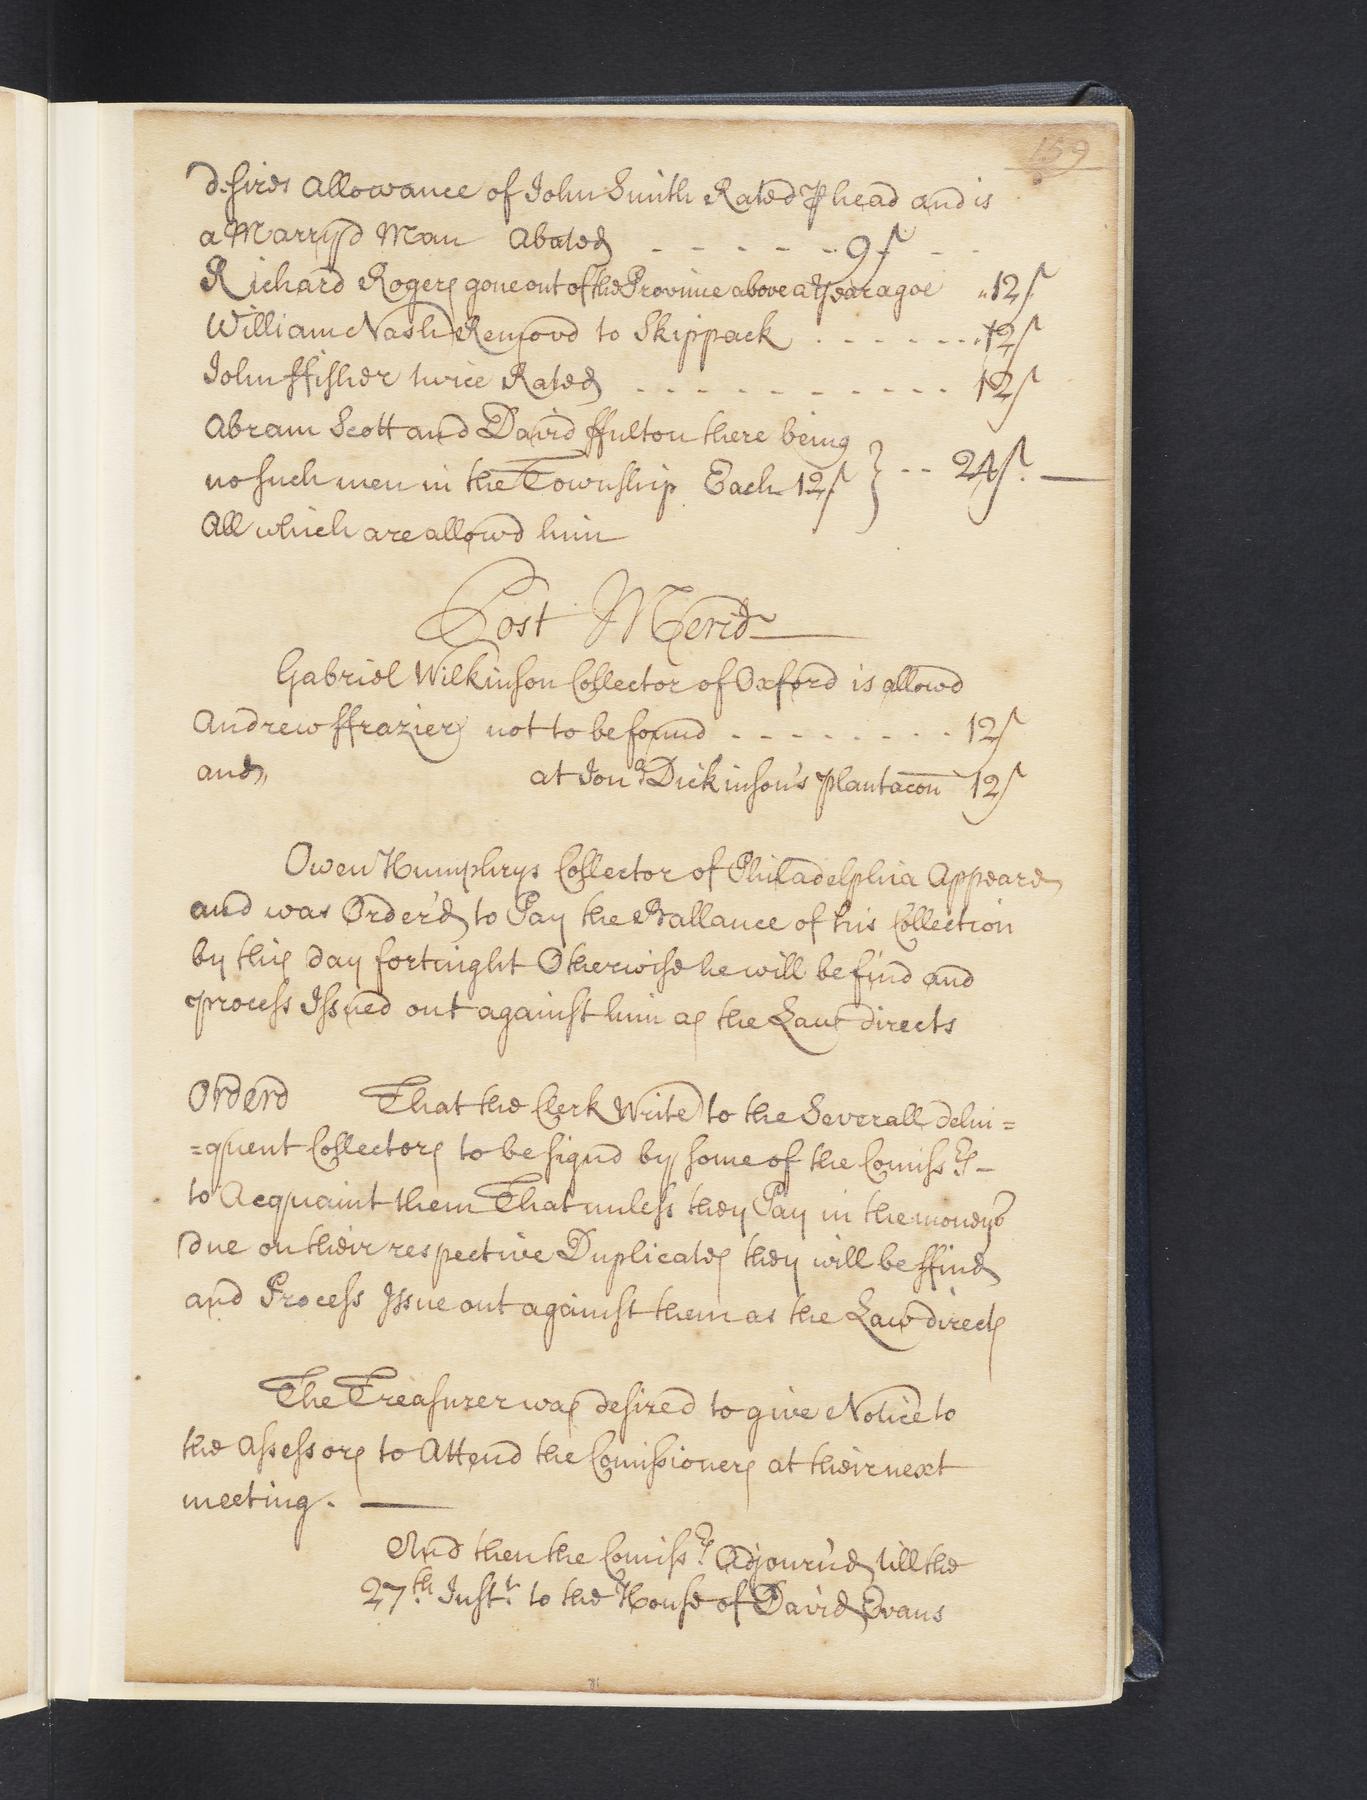 159
desires Allowance of John Smith Rated ⅌ head and is
a Marryd Man Abated - - - - - - 9/ - -
Richard Rogers gone out of the Province above a Year agoe 12/
William Nash Removd to Skippack . . . . . . . 12/
John ffisher twice Rated - - - - - - - - - - 12/
Abram Scott and David ffulton there being
no such men in the Township Each 12/ } - - 24/. —
All which are allowd him
Post Merid —
Gabriel Wilkinson Collector of Oxford is allowd
Andrew ffraziers not to be found - - - - - - - - 12/
and, at Jonᵃ Dickinson's plantacon 12/
Owen Humphrys Collector of Philadelphia Appeard
and was Order'd to Pay the Ballance of his Collection
by this day fortnight Otherwise he will be find and
process Issued out against him as the Law directs
Orderd That the Clerk Write to the Severall delin=
=quent Collectors to be signd by some of the Comissrs -
to Acquaint them That unless they Pay in the moneys
due on their respective Duplicates they will be ffind
and Process Issue out against them as the Law directs
The Treasurer was desired to give Notice to
the Assessors to Attend the Comissioners at their next
meeting. —
And then the Comissrs Adjourn'd till the
27.th Inst.t to the House of David Evans